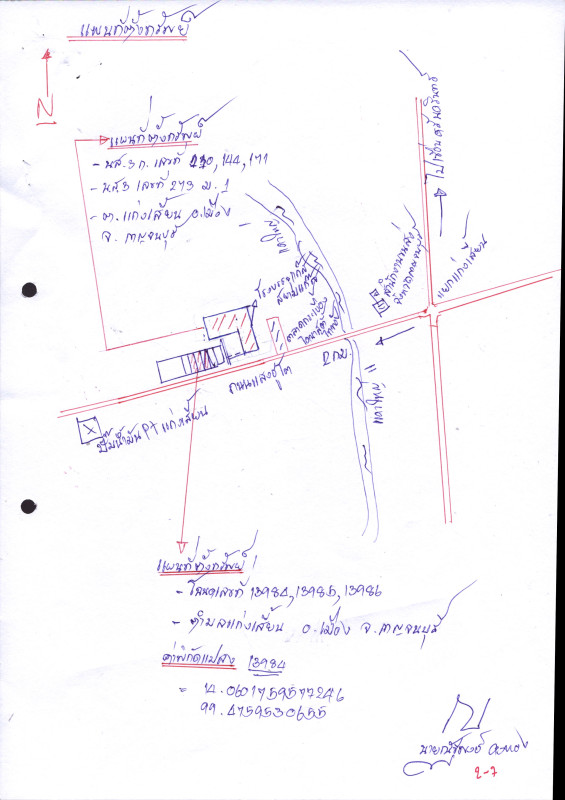 แผนที่ตั้งทรัพย์
N
แผนที่ตั้งทรัพย์
- นส.3 ก. เลขที่ 140, 144, 171
- นส.3 เลขที่ 273 ม. 1
- ต. แก่งเสี้ยน อ.เมือง
จ. กาญจนบุรี
ไปเขื่อนศรีนครินทร์
แควใหญ่
สำนักงานขนส่ง
จังหวัดกาญจนบุรี
แยกแก่งเสี้ยน
โรงบรรจุแก๊ส
สยามแก๊ส
2 กม.
ถนนแสงชูโต
แควใหญ่
ปั๊มน้ำมัน PT แก่งเสี้ยน
แผนที่ตั้งทรัพย์
- โฉนดเลขที่ 13984, 13985, 13986
- ตำบลแก่งเสี้ยน อ.เมือง จ.กาญจนบุรี
ค่าพิกัดแปลง 13984
= 14.0601759577246
99.4759530655
2-7